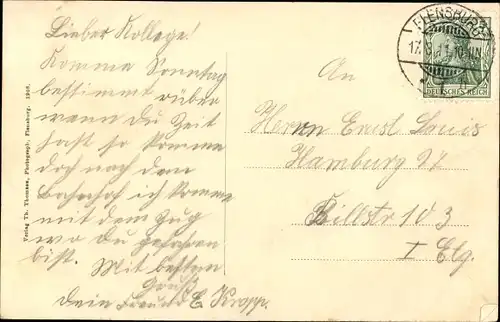 Lieber Kollege!
Komme Sonntag
bestimmt rüber
wenn Du Zeit
hast so komme
doch nach dem
Bahnhof ich komme
mit dem Zug
wo Du gefahren
bist. Mit bestem
Gruß
Dein Freund E. Kropp.
Verlag Th. Thomsen, Photograph, Flensburg.
FLENSBURG
DEUTSCHES REICH
An
Herrn Ernst Louis
Hamburg 27
Billstr 103
I Etg.